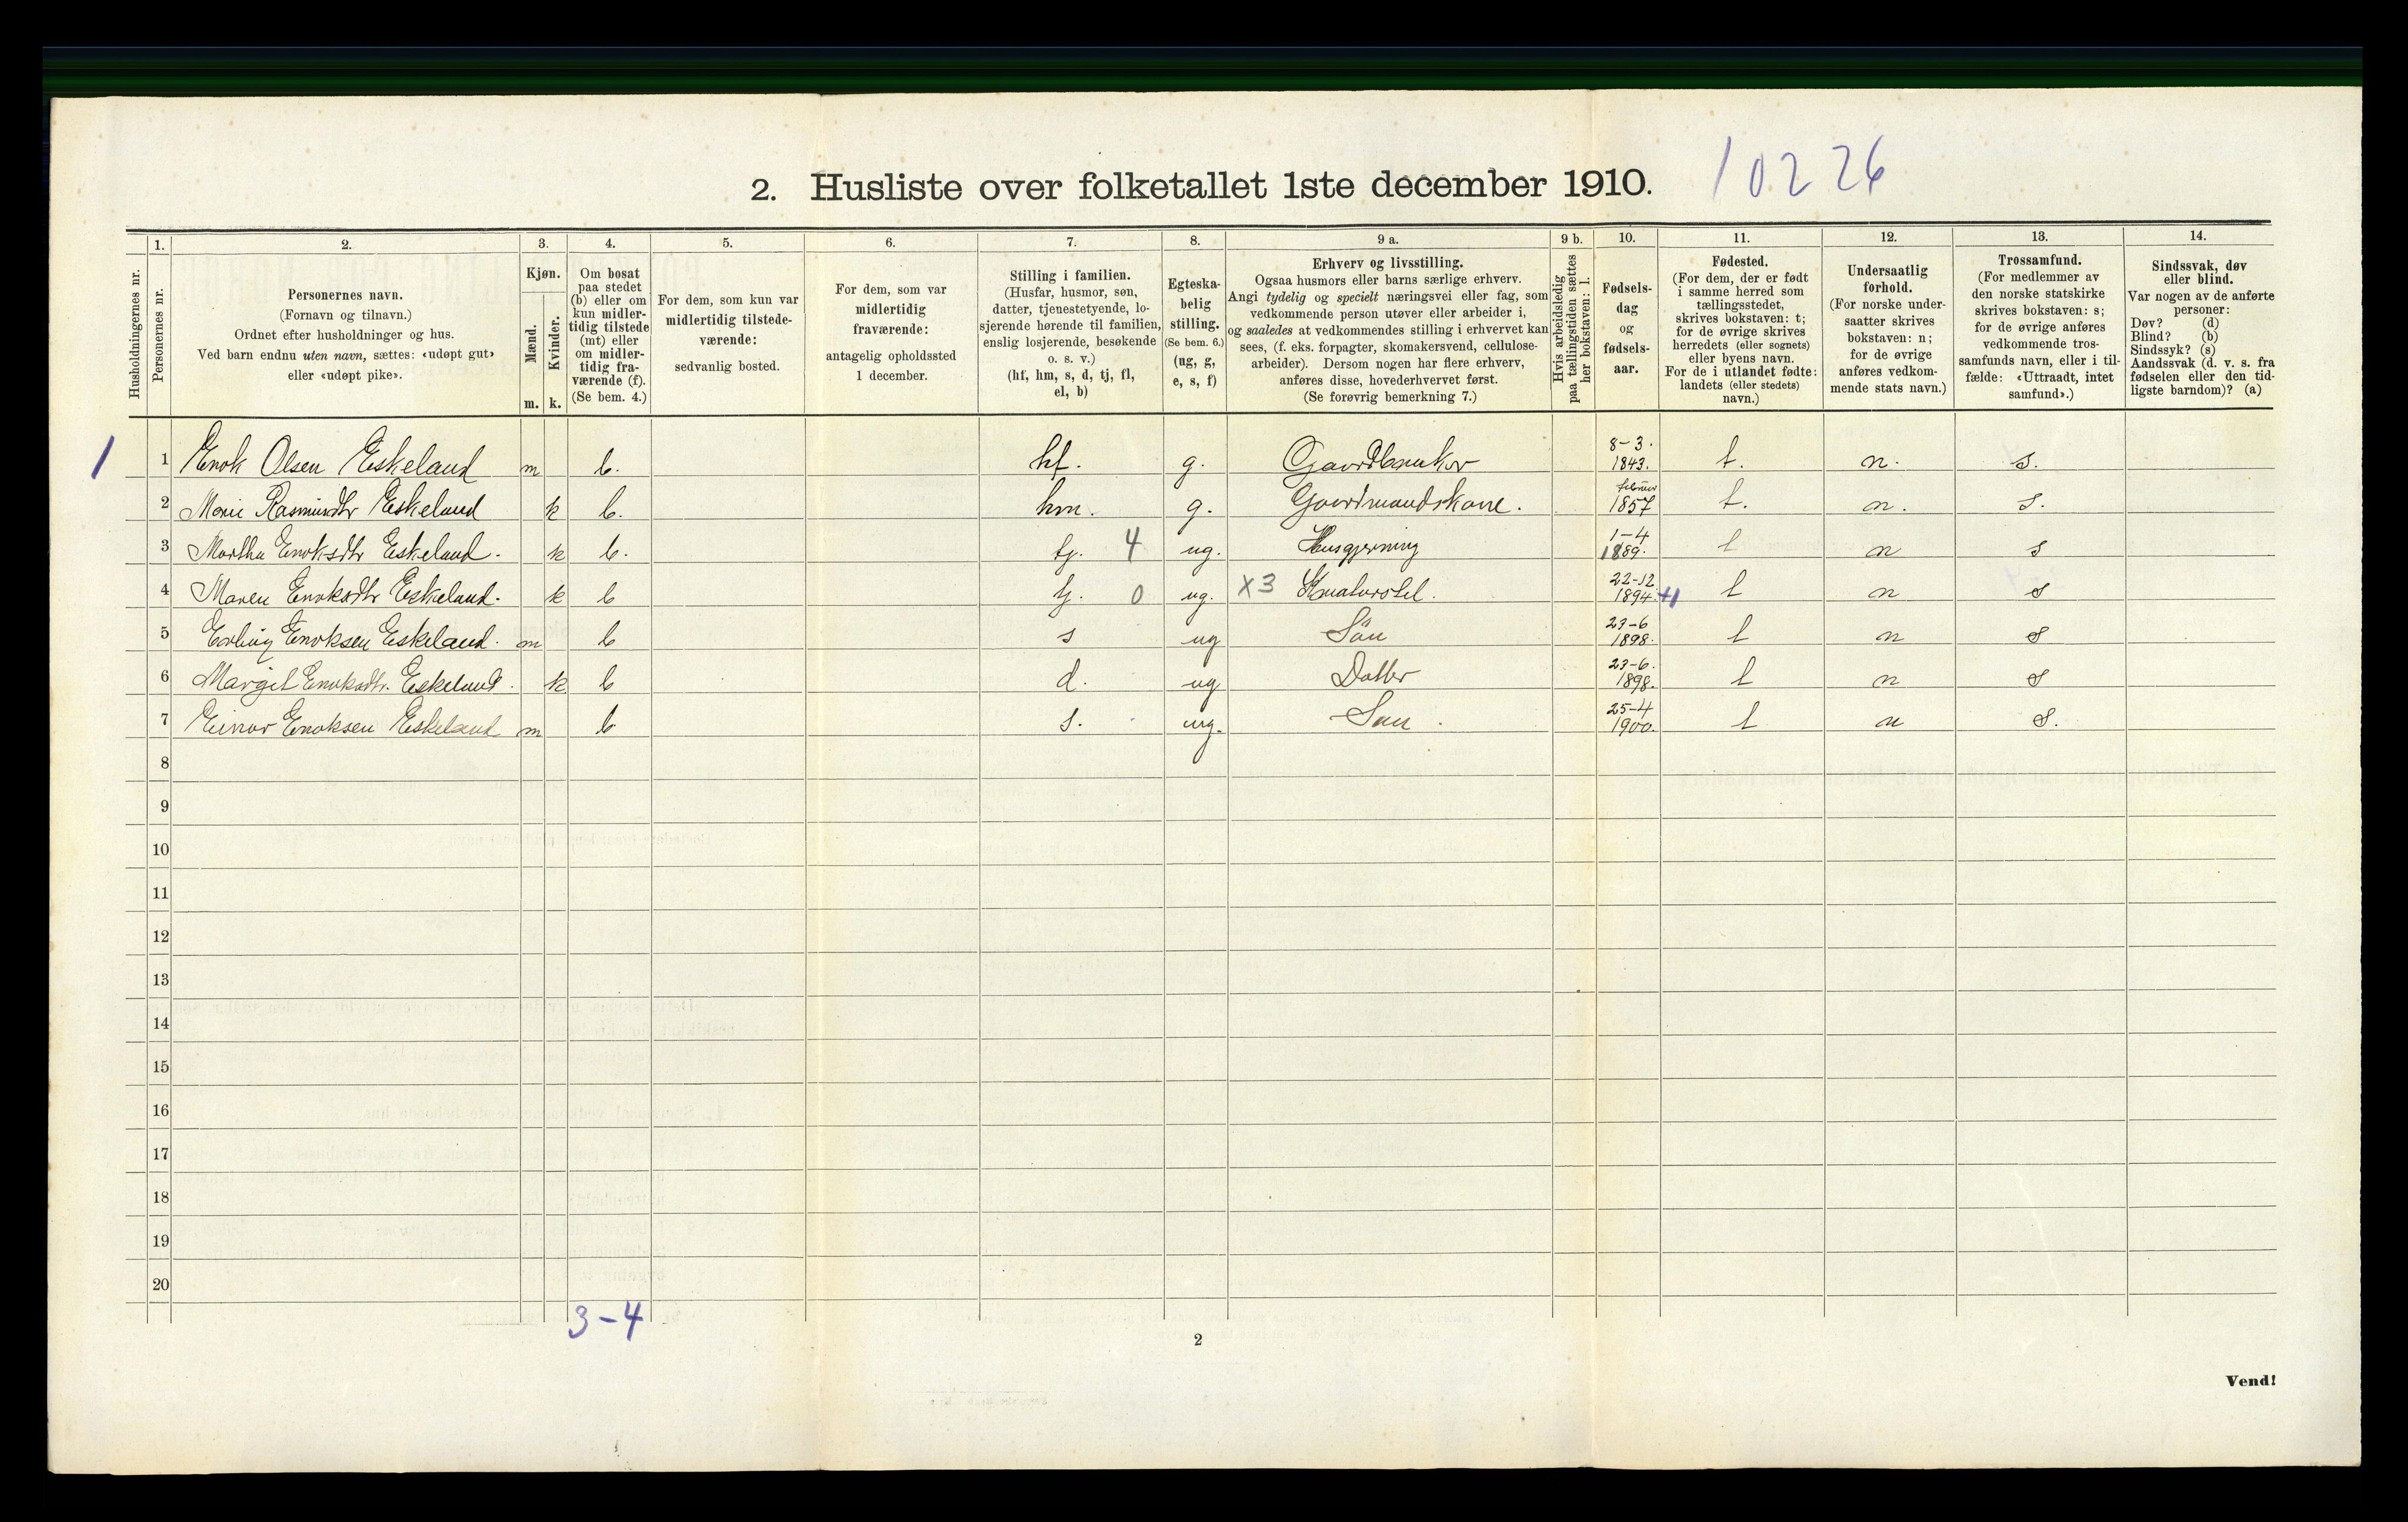 2. Husliste over folketallet 1ste december 1910. 10226
Husholdningernes nr.
1.
Personernes nr.
2.
Personernes navn.
(Fornavn og tilnavn.)
Ordnet efter husholdninger og hus.
Ved barn endnu uten navn, sættes: «udøpt gut»
eller «udøpt pike».
3.
Kjøn.
Mænd.
m.
Kvinder.
k.
4.
Om bosat
paa stedet
(b) eller om
kun midler-
tidig tilstede
(mt) eller
om midler-
tidig fra-
værende (f).
(Se bem. 4.)
5.
For dem, som kun var
midlertidig tilstede-
værende:
sedvanlig bosted.
6.
For dem, som var
midlertidig
fraværende:
antagelig opholdssted
1 december.
7.
Stilling i familien.
(Husfar, husmor, søn,
datter, tjenestetyende, lo-
sjerende hørende til familien,
enslig losjerende, besøkende
o. s. v.)
(hf, hm, s, d, tj, fl,
el, b)
8.
Egteska-
belig
stilling.
(Se bem. 6.)
(ug, g,
e, s, f)
9 a.
Erhverv og livsstilling.
Ogsaa husmors eller barns særlige erhverv.
Angi tydelig og specielt næringsvei eller fag, som
vedkommende person utøver eller arbeider i,
og saaledes at vedkommendes stilling i erhvervet kan
sees, (f. eks. forpagter, skomakersvend, cellulose-
arbeider). Dersom nogen har flere erhverv,
anføres disse, hovederhvervet først.
(Se forøvrig bemerkning 7.)
9 b.
Hvis arbeidsledig
paa tællingstiden sættes
her bokstaven: l.
10.
Fødsels-
dag
og
fødsels-
aar.
11.
Fødested.
(For dem, der er født
i samme herred som
tællingsstedet,
skrives bokstaven: t;
for de øvrige skrives
herredets (eller sognets)
eller byens navn.
For de i utlandet fødte:
landets (eller stedets)
navn.)
12.
Undersaatlig
forhold.
(For norske under-
saatter skrives
bokstaven: n;
for de øvrige
anføres vedkom-
mende stats navn.)
13.
Trossamfund.
(For medlemmer av
den norske statskirke
skrives bokstaven: s;
for de øvrige anføres
vedkommende tros-
samfunds navn, eller i til-
fælde: «Uttraadt, intet
samfund».)
14.
Sindssvak, døv
eller blind.
Var nogen av de anførte
personer:
Døv? (d)
Blind? (b)
Sindssyk? (s)
Aandssvak (d. v. s. fra
fødselen eller den tid-
ligste barndom)? (a)
1 1 Enok Olsen Eskeland m b. hf. g. Gaardbruker 8-3. 1843. t. n. s.
2 Marie Rasmusdtr Eskeland k b. hm. g. Gaardmandskone. februar 1857 t. n. s.
3 Martha Enoksdtr Eskeland. k b. tj. 4 ug. Husgjerning 1-4 1889. t n s
4 Maren Enoksdtr Eskeland. k b tj. 0 ug. X3 Kreaturstel. 22-12 1894. +1 t n s
5 Erling Enoksen Eskeland. m b s ug Sön 23-6 1898. t n s
6 Margit Enoksdtr. Eskeland. k b d. ug Datter 23-6. 1898. t n s
7 Einar Enoksen Eskeland m b s. ug. Søn. 25-4 1900. t n s.
8
9
10
11
12
13
14
15
16
17
18
19
20
3-4
2
Vend!